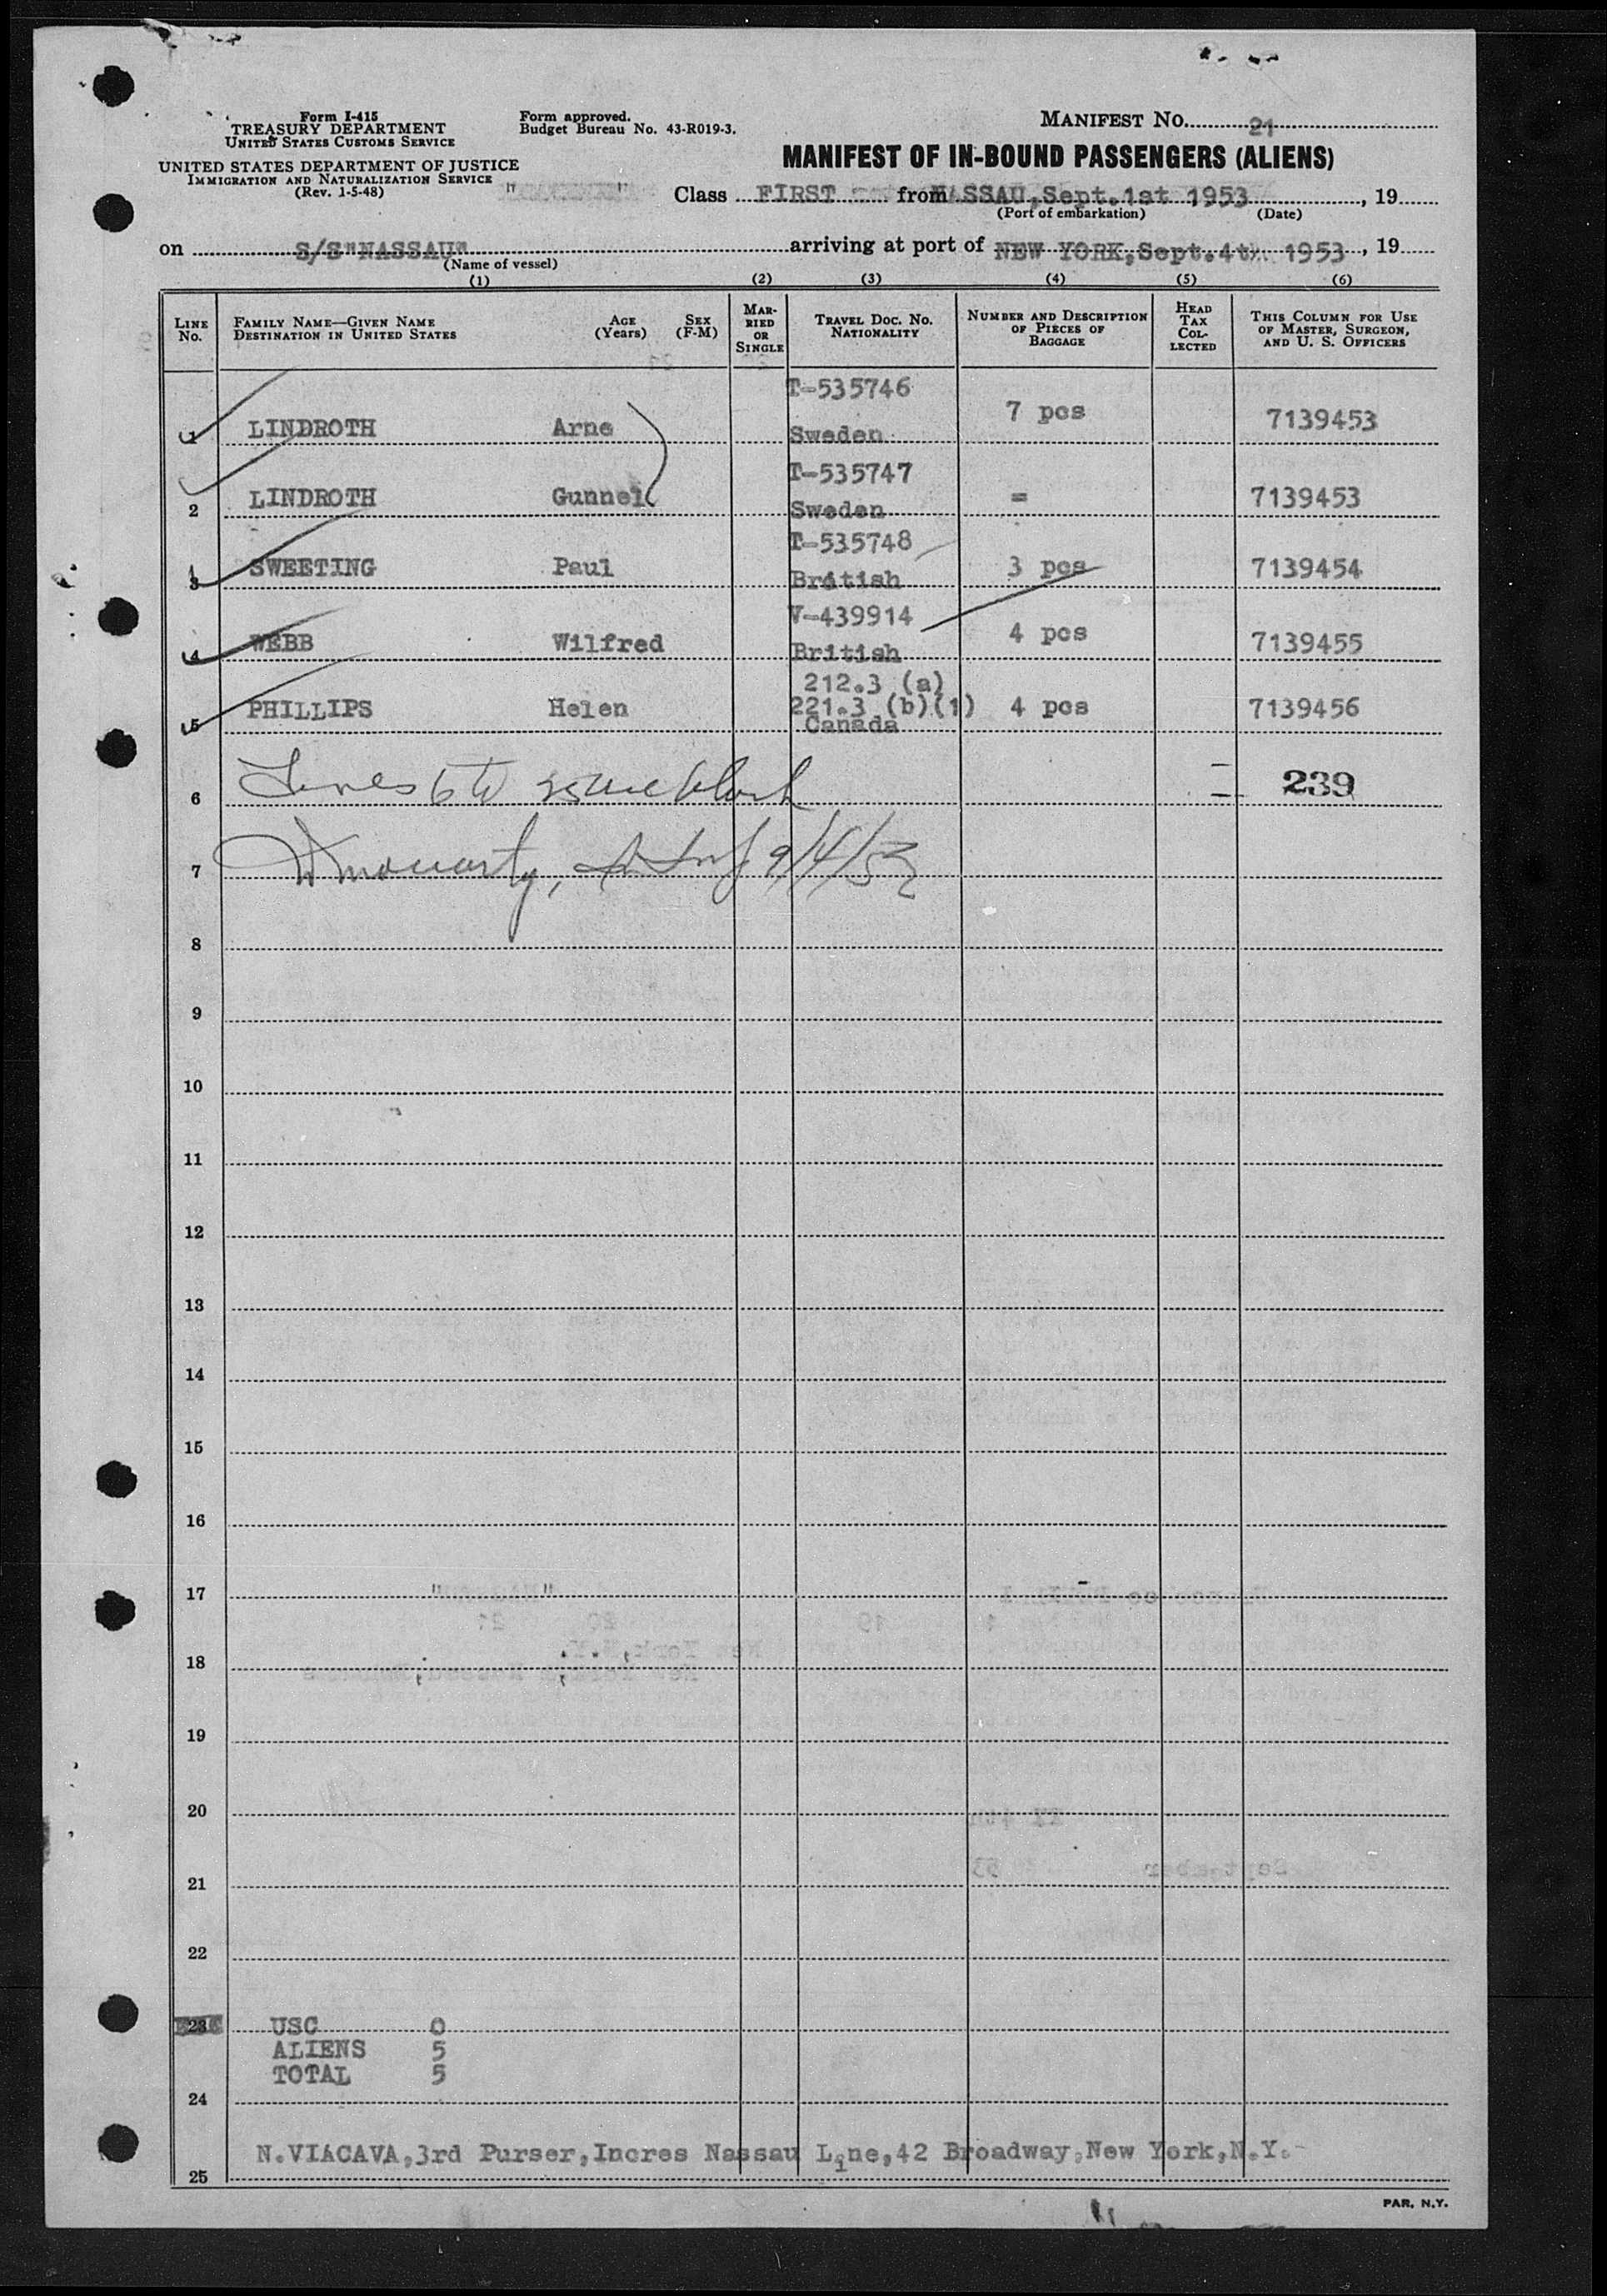 Form I-415
TREASURY DEPARTMENT
UNITED STATES CUSTOMS SERVICE
UNITED STATES DEPARTMENT OF JUSTICE
IMMIGRATION AND NATURALIZATION SERVICE
(Rev. 1-5-48)
Form approved.
Budget Bureau No. 43-R019-3.
MANIFEST NO. 21
MANIFEST OF IN-BOUND PASSENGERS (ALIENS)
Class FIRST from NASSAU, Sept. 1st 1953, 19
(Port of embarkation) (Date)
on S/S "NASSAU" arriving at port of NEW YORK, Sept. 4th 1953, 19
(Name of vessel)
(1) (2) (3) (4) (5) (6)
LINE NO. FAMILY NAME—GIVEN NAME DESTINATION IN UNITED STATES AGE (Years) SEX (F-M) MARRIED OR SINGLE TRAVEL DOC. NO. NATIONALITY NUMBER AND DESCRIPTION OF PIECES OF BAGGAGE HEAD TAX COLLECTED THIS COLUMN FOR USE OF MASTER, SURGEON, AND U. S. OFFICERS
T-535746
1 LINDROTH Arne Sweden 7 pcs 7139453
T-535747
2 LINDROTH Gunnel Sweden = 7139453
T-535748
3 SWEETING Paul British 3 pcs 7139454
V-439914
4 WEBB Wilfred British 4 pcs 7139455
212.3 (a)
5 PHILLIPS Helen 221.3 (b)(1) 4 pcs 7139456
Canada
6 Lines 6 to 25 are blank 239
7 9/4/53
8
9
10
11
12
13
14
15
16
17
18
19
20
21
22
23 USC 0
ALIENS 5
TOTAL 5
24
N.VIACAVA,3rd Purser,Incres Nassau Line,42 Broadway,New York,N.Y.-
25
PAR, N.Y.